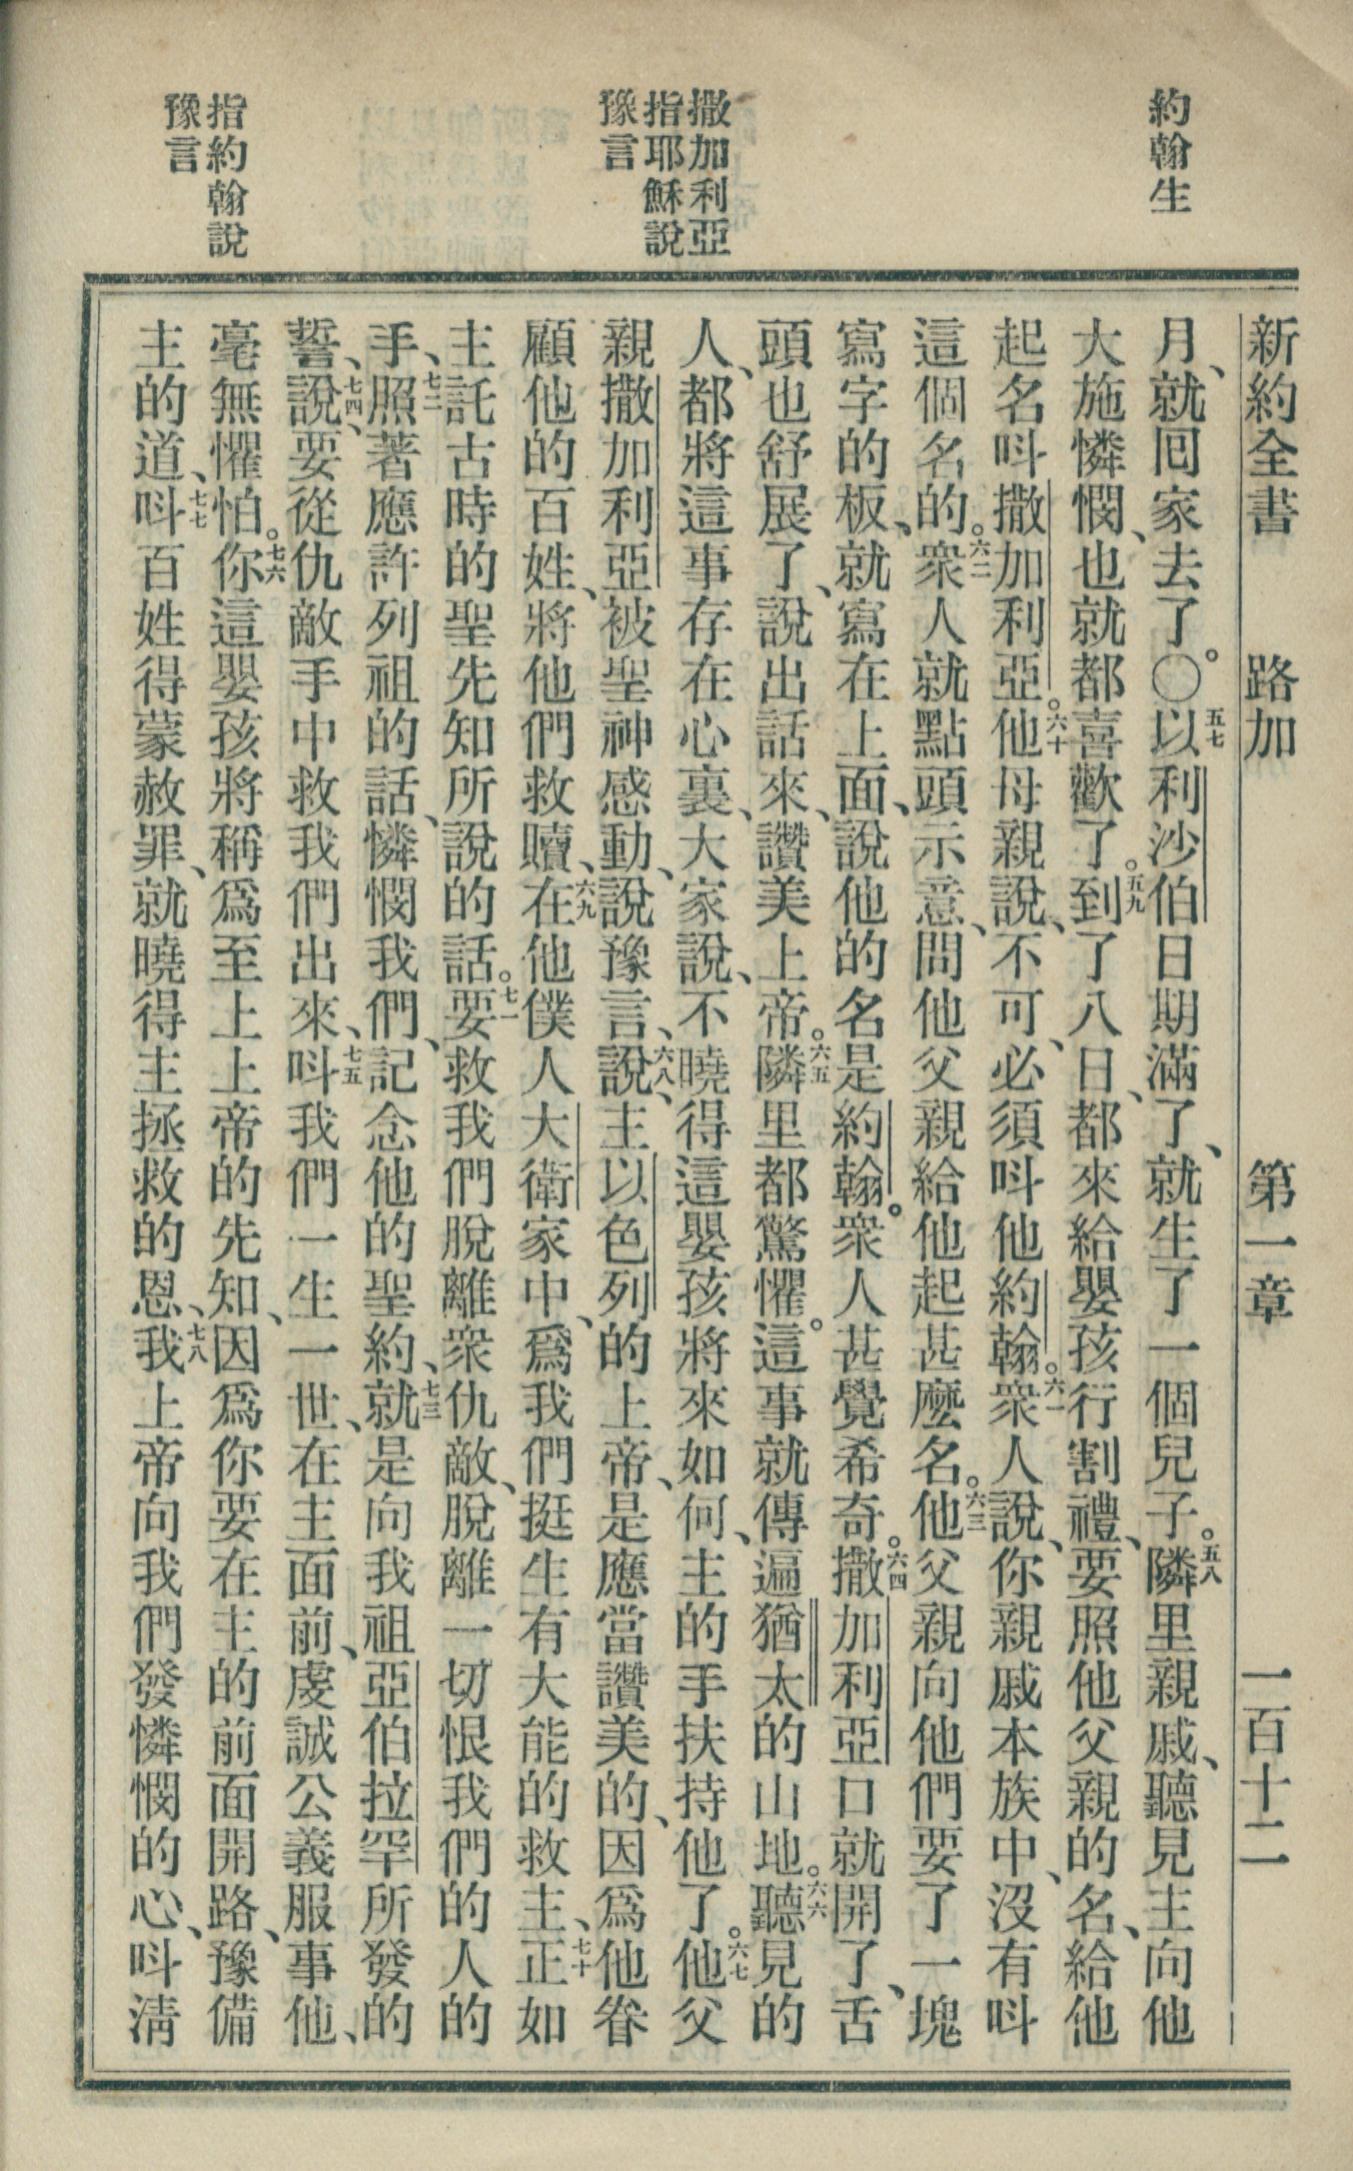 約翰生
撒加利亞
指耶穌說
豫言
指約翰說
豫言
新約全書 路加 第一章 一百十二
月、就囘家去了。〇五七以利沙伯日期滿了、就生了一個兒子。五八隣里親戚、聽見主向他
大施憐憫、也就都喜歡了。五九到了八日、都來給嬰孩行割禮、要照他父親的名、給他
起名呌撒加利亞。六十他母親說、不可、必須呌他約翰。六一衆人說、你親戚本族中、沒有呌
這個名的。六二衆人就點頭示意、問他父親給他起甚麼名。六三他父親向他們要了一塊
寫字的板、就寫在上面、說他的名是約翰。衆人甚覺希奇。六四撒加利亞口就開了、舌
頭也舒展了、說出話來、讚美上帝。六五隣里都驚懼。這事就傳遍猶太的山地。六六聽見的
人、都將這事存在心裏、大家說、不曉得這嬰孩將來如何、主的手扶持他了。六七他父
親撒加利亞被聖神感動、說豫言、說、六八主以色列的上帝、是應當讚美的、因爲他眷
顧他的百姓、將他們救贖、六九在他僕人大衛家中、爲我們挺生有大能的救主、七十正如
主託古時的聖先知所說的話。七一要救我們脫離衆仇敵、脫離一切恨我們的人的
手、七二照著應許列祖的話、憐憫我們、記念他的聖約、七三就是向我祖亞伯拉罕所發的
誓、說、七四要從仇敵手中救我們出來、七五呌我們一生一世、在主面前、虔誠公義服事他、
毫無懼怕。七六你這嬰孩將稱爲至上上帝的先知、因爲你要在主的前面開路、豫備
主的道、七七呌百姓得蒙赦罪、就曉得主拯救的恩、七八我上帝向我們發憐憫的心、呌淸